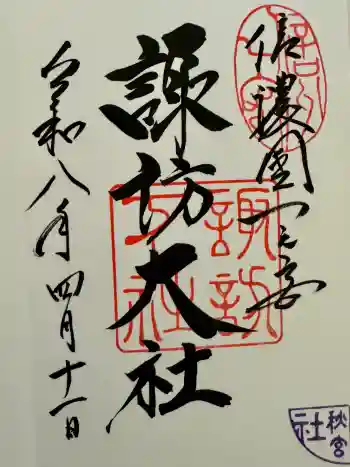 信濃國一之宮
諏訪大社
令和八年四月十一日
諏訪
大社
秋宮
社